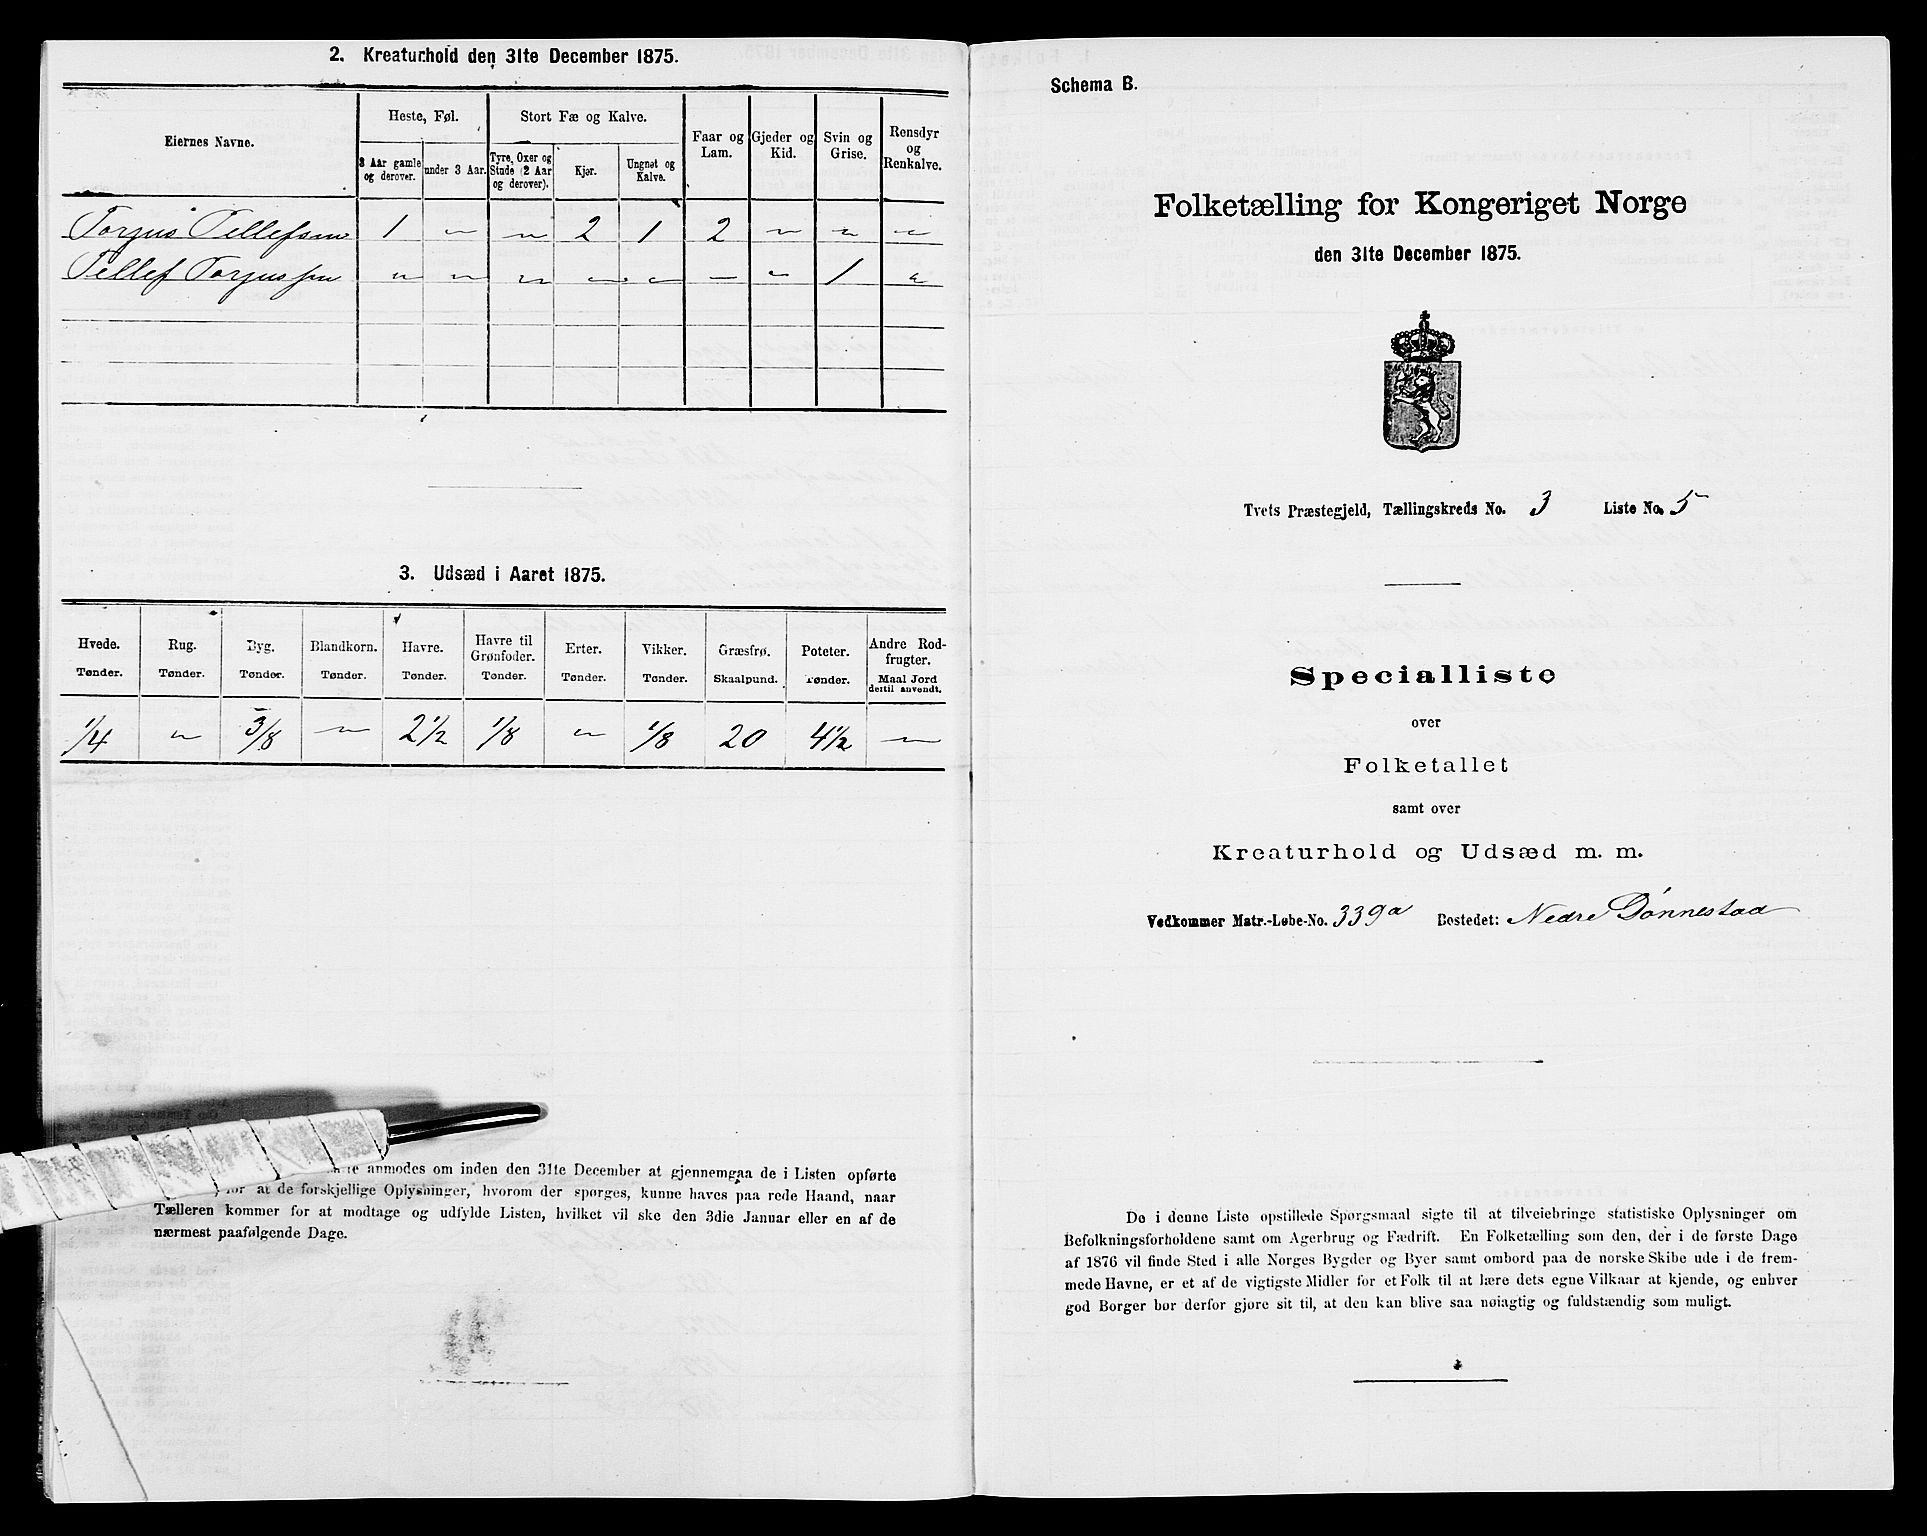 2. Kreaturhold den 31te December 1875.
Eiernes Navne.
Heste, Føl.
Stort Fæ og Kalve.
Faar og Lam.
Gjeder og Kid.
Svin og Grise.
Rensdyr og Renkalve.
3 Aar gamle og derover.
under 3 Aar.
Tyre, Oxer og Stude (2 Aar og derover).
Kjør.
Ungnøt og Kalve.
Torgus Tellefsen 1 " " 2 1 2 " " "
Tellef Torgussen " " " " " " " 1 "
3. Udsæd i Aaret 1875.
Hvede. Rug. Byg. Blandkorn. Havre. Havre til Grønfoder. Erter. Vikker. Græsfrø. Poteter. Andre Rodfrugter.
Tønder. Tønder. Tønder. Tønder. Tønder. Tønder. Tønder. Tønder. Skaalpund. Tønder. Maal Jord dertil anvendt.
1/4 " 3/8 " 2 1/2 1/8 " 1/8 20 4 1/2 "
anmodes om inden den 31te December at gjennemgaa de i Listen opførte
for at de forskjellige Oplysninger, hvorom der spørges, kunne haves paa rede Haand, naar
Tælleren kommer for at modtage og udfylde Listen, hvilket vil ske den 3die Januar eller en af de
nærmest paafølgende Dage.
Schema B.
Folketælling for Kongeriget Norge
den 31te December 1875.
Tvets Præstegjeld, Tællingskreds No. 3 Liste No. 5
Specialliste
over
Folketallet
samt over
Kreaturhold og Udsæd m. m.
Vedkommer Matr.-Løbe-No. 339a Bostedet: Nedre Dønnestad
De i denne Liste opstillede Spørgsmaal sigte til at tilveiebringe statistiske Oplysninger om
Befolkningsforholdene samt om Agerbrug og Fædrift. En Folketælling som den, der i de første Dage
af 1876 vil finde Sted i alle Norges Bygder og Byer samt ombord paa de norske Skibe ude i de frem-
mede Havne, er et af de vigtigste Midler for et Folk til at lære dets egne Vilkaar at kjende, og enhver
god Borger bør derfor gjøre sit til, at den kan blive saa nøiagtig og fuldstændig som muligt.